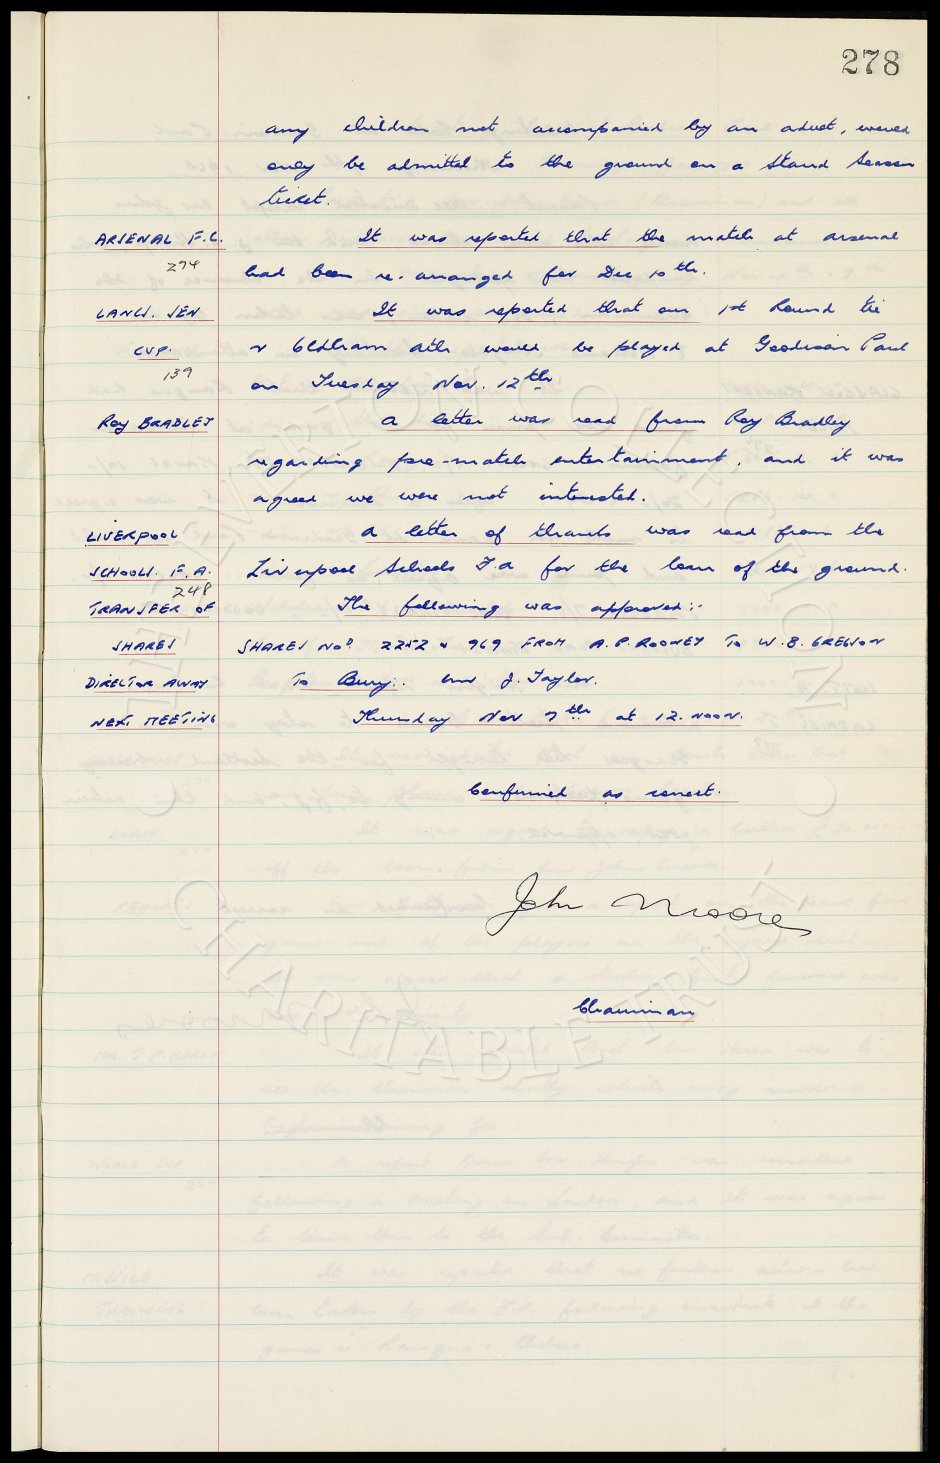 278
any children not accompanied by an adult, would
only be admitted to the ground on a Stand Season
ticket.
ARSENAL F.C. It was reported that the match at Arsenal
274
had been re-arranged for Dec 10th.
LANCS. SEN It was reported that our 1st Round tie
CUP. v Oldham Ath would be played at Goodison Park
139
on Tuesday Nov. 12th
ROY BRADLEY A letter was read from Roy Bradley
regarding pre-match entertainment, and it was
agreed we were not interested.
LIVERPOOL A letter of thanks was read from the
SCHOOLS. F.A. Liverpool Schools F.A for the loan of the ground.
248
TRANSFER OF The following was approved:-
SHARES SHARES NOS 2252 & 969 FROM A.P. ROONEY TO W.B. GREGSON
DIRECTOR AWAY To Bury:. Mr J. Taylor.
NEXT MEETING Thursday Nov 7th at 12. NOON.
Confirmed as correct.
John Moores
Chairman
THE EVERTON COLLECTION
CHARITABLE TRUST